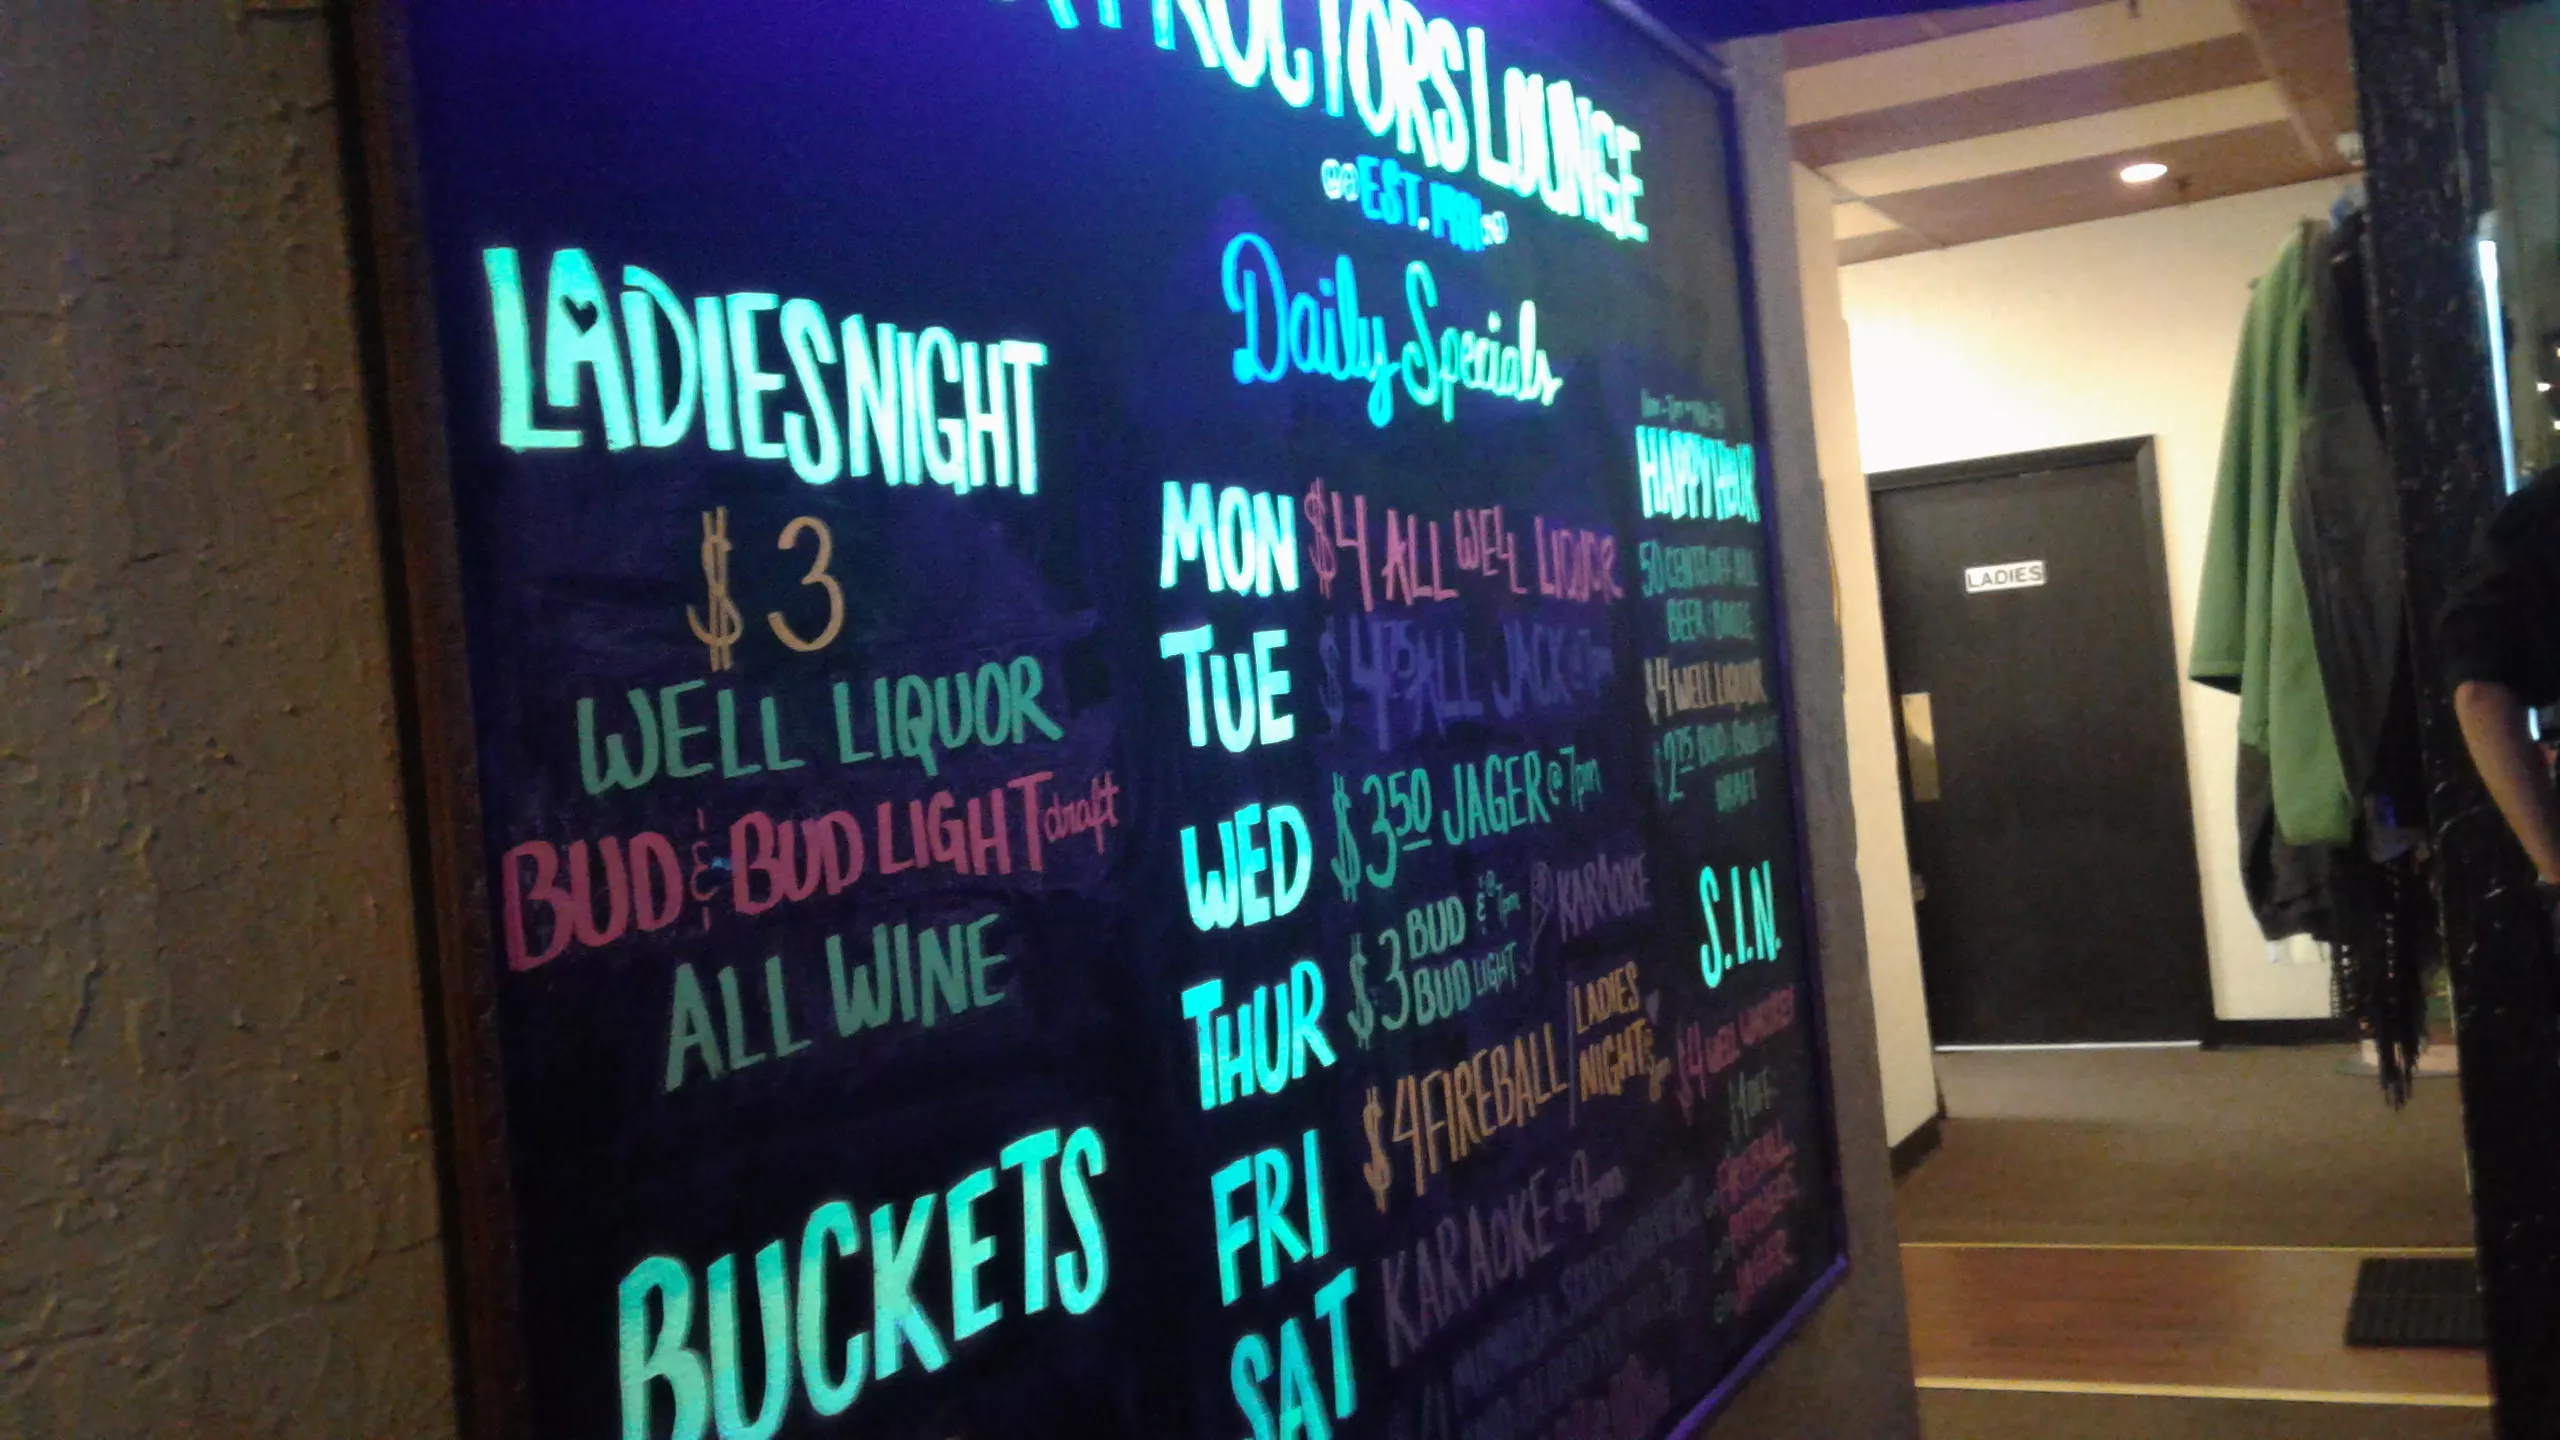 PROCTORS LOUNGE
EST.
Daily Specials
LADIES NIGHT
$3
WELL LIQUOR
BUD & BUD LIGHT draft
ALL WINE
BUCKETS
MON $4 ALL WELL LIQUOR
TUE $4 75 ALL JACK @ 7pm
WED $3 50 JAGER @ 7pm
THUR $3 BUD & BUD LIGHT @ 7pm KARAOKE
FRI $4 FIREBALL / LADIES NIGHT
SAT KARAOKE @ 9pm
HAPPY HOUR
50 CENTS OFF ALL
BEER
$4 WELL LIQUOR
$2 75 BUD
DRAFT
S.I.N.
$4 WELL
$1 OFF
FIREBALL
JAGER
LADIES